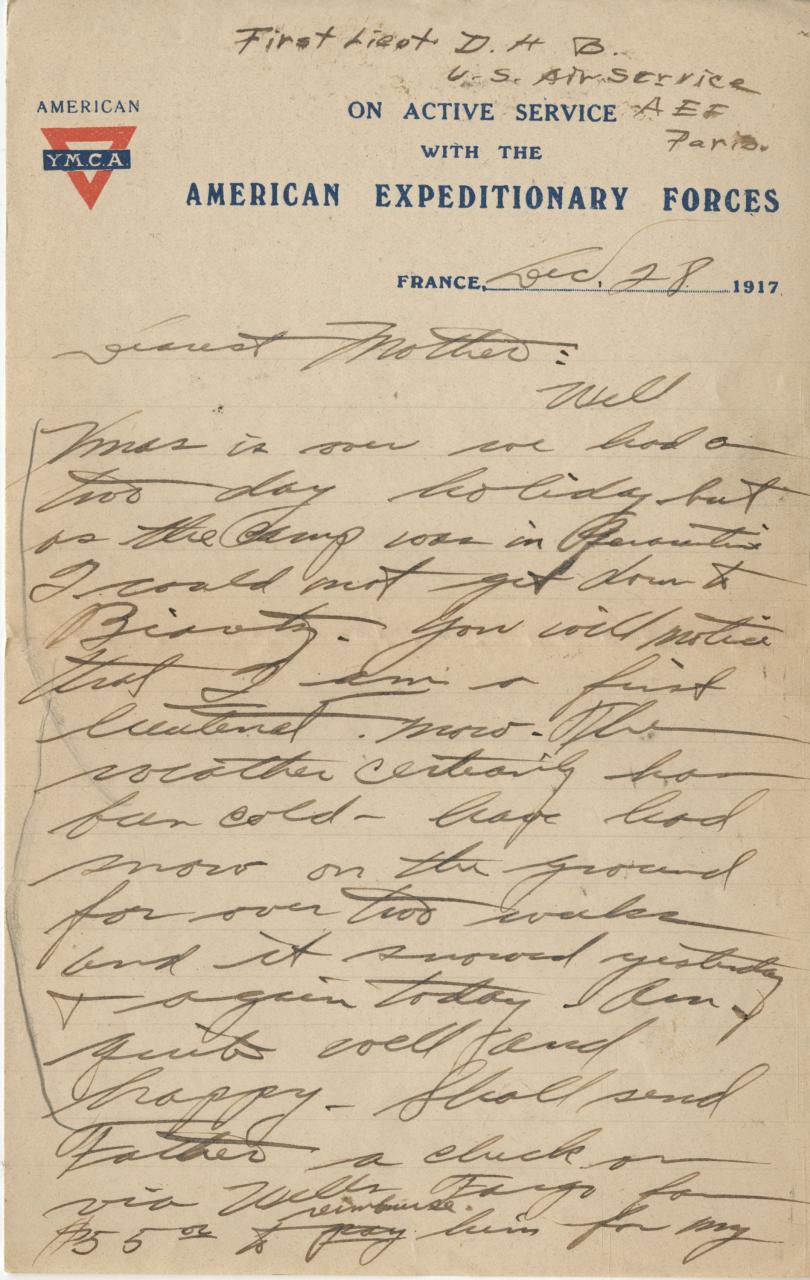 First Lieut D. H B.
U. S. Air Service
AEF
Paris.
AMERICAN
Y.M.C.A.
ON ACTIVE SERVICE
WITH THE
AMERICAN EXPEDITIONARY FORCES
FRANCE, Dec. 28 1917
Dearest Mother:
Well
Xmas is over we had a
two day holiday but
as the camp was in Quarantine
I could not get down to
Biarritz. You will notice
that I am a first
lieutenant now. The
weather certainly has
been cold - have had
snow on the ground
for over two weeks
and it snowed yesterday
+ again today. Am
quite well and
happy - Shall send
Father a check or
via Wells Fargo for
reimburse.
$55 00 to pay him for my